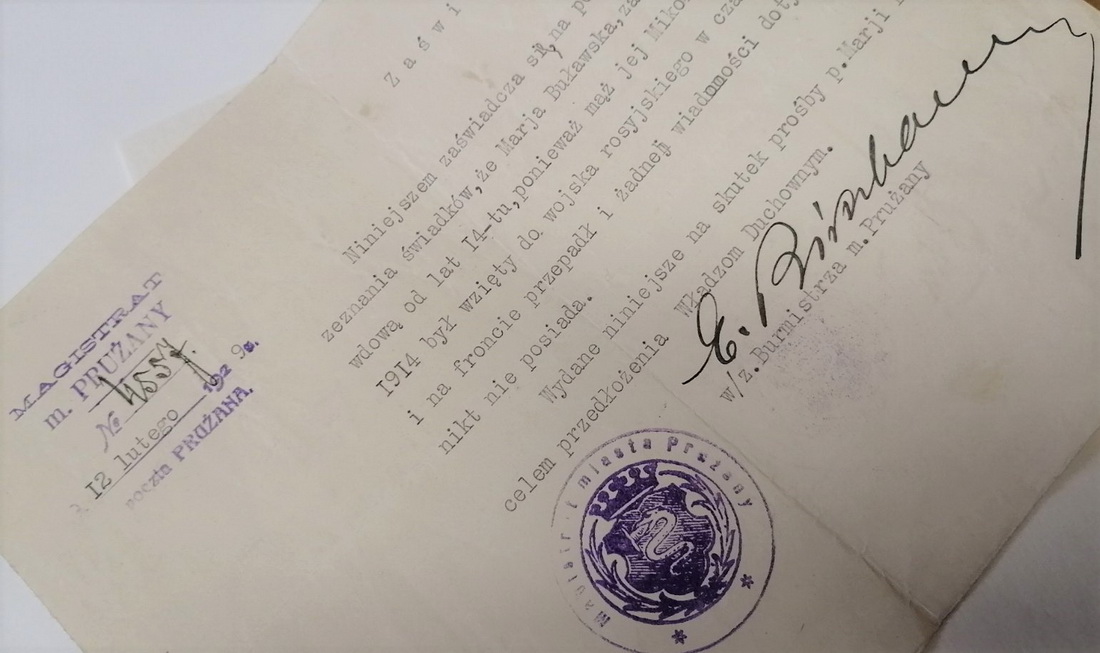 MAGISTRAT
m. PRUŻANY
№
12 lutego 1929r.
poczta PRUŻANA.
Zaświ
Niniejszem zaświadcza się, na po
zeznania świadków, że Marja Buławska, za
wdową od lat I4-tu, ponieważ mąż jej Miko
I9I4 był wzięty do wojska rosyjskiego w cza
i na froncie przepadł i żadnej wiadomości doty
nikt nie posiada.
Wydane niniejsze na skutek prośby p. Marji
celem przedłożenia Władzom Duchownym.
w/z. Burmistrza m. Prużany
Magistrat miasta Prużany